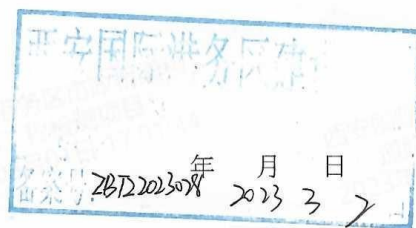 西安国际港务区
年 月 日
备案号: ZBTZ2023028 2023 3 2